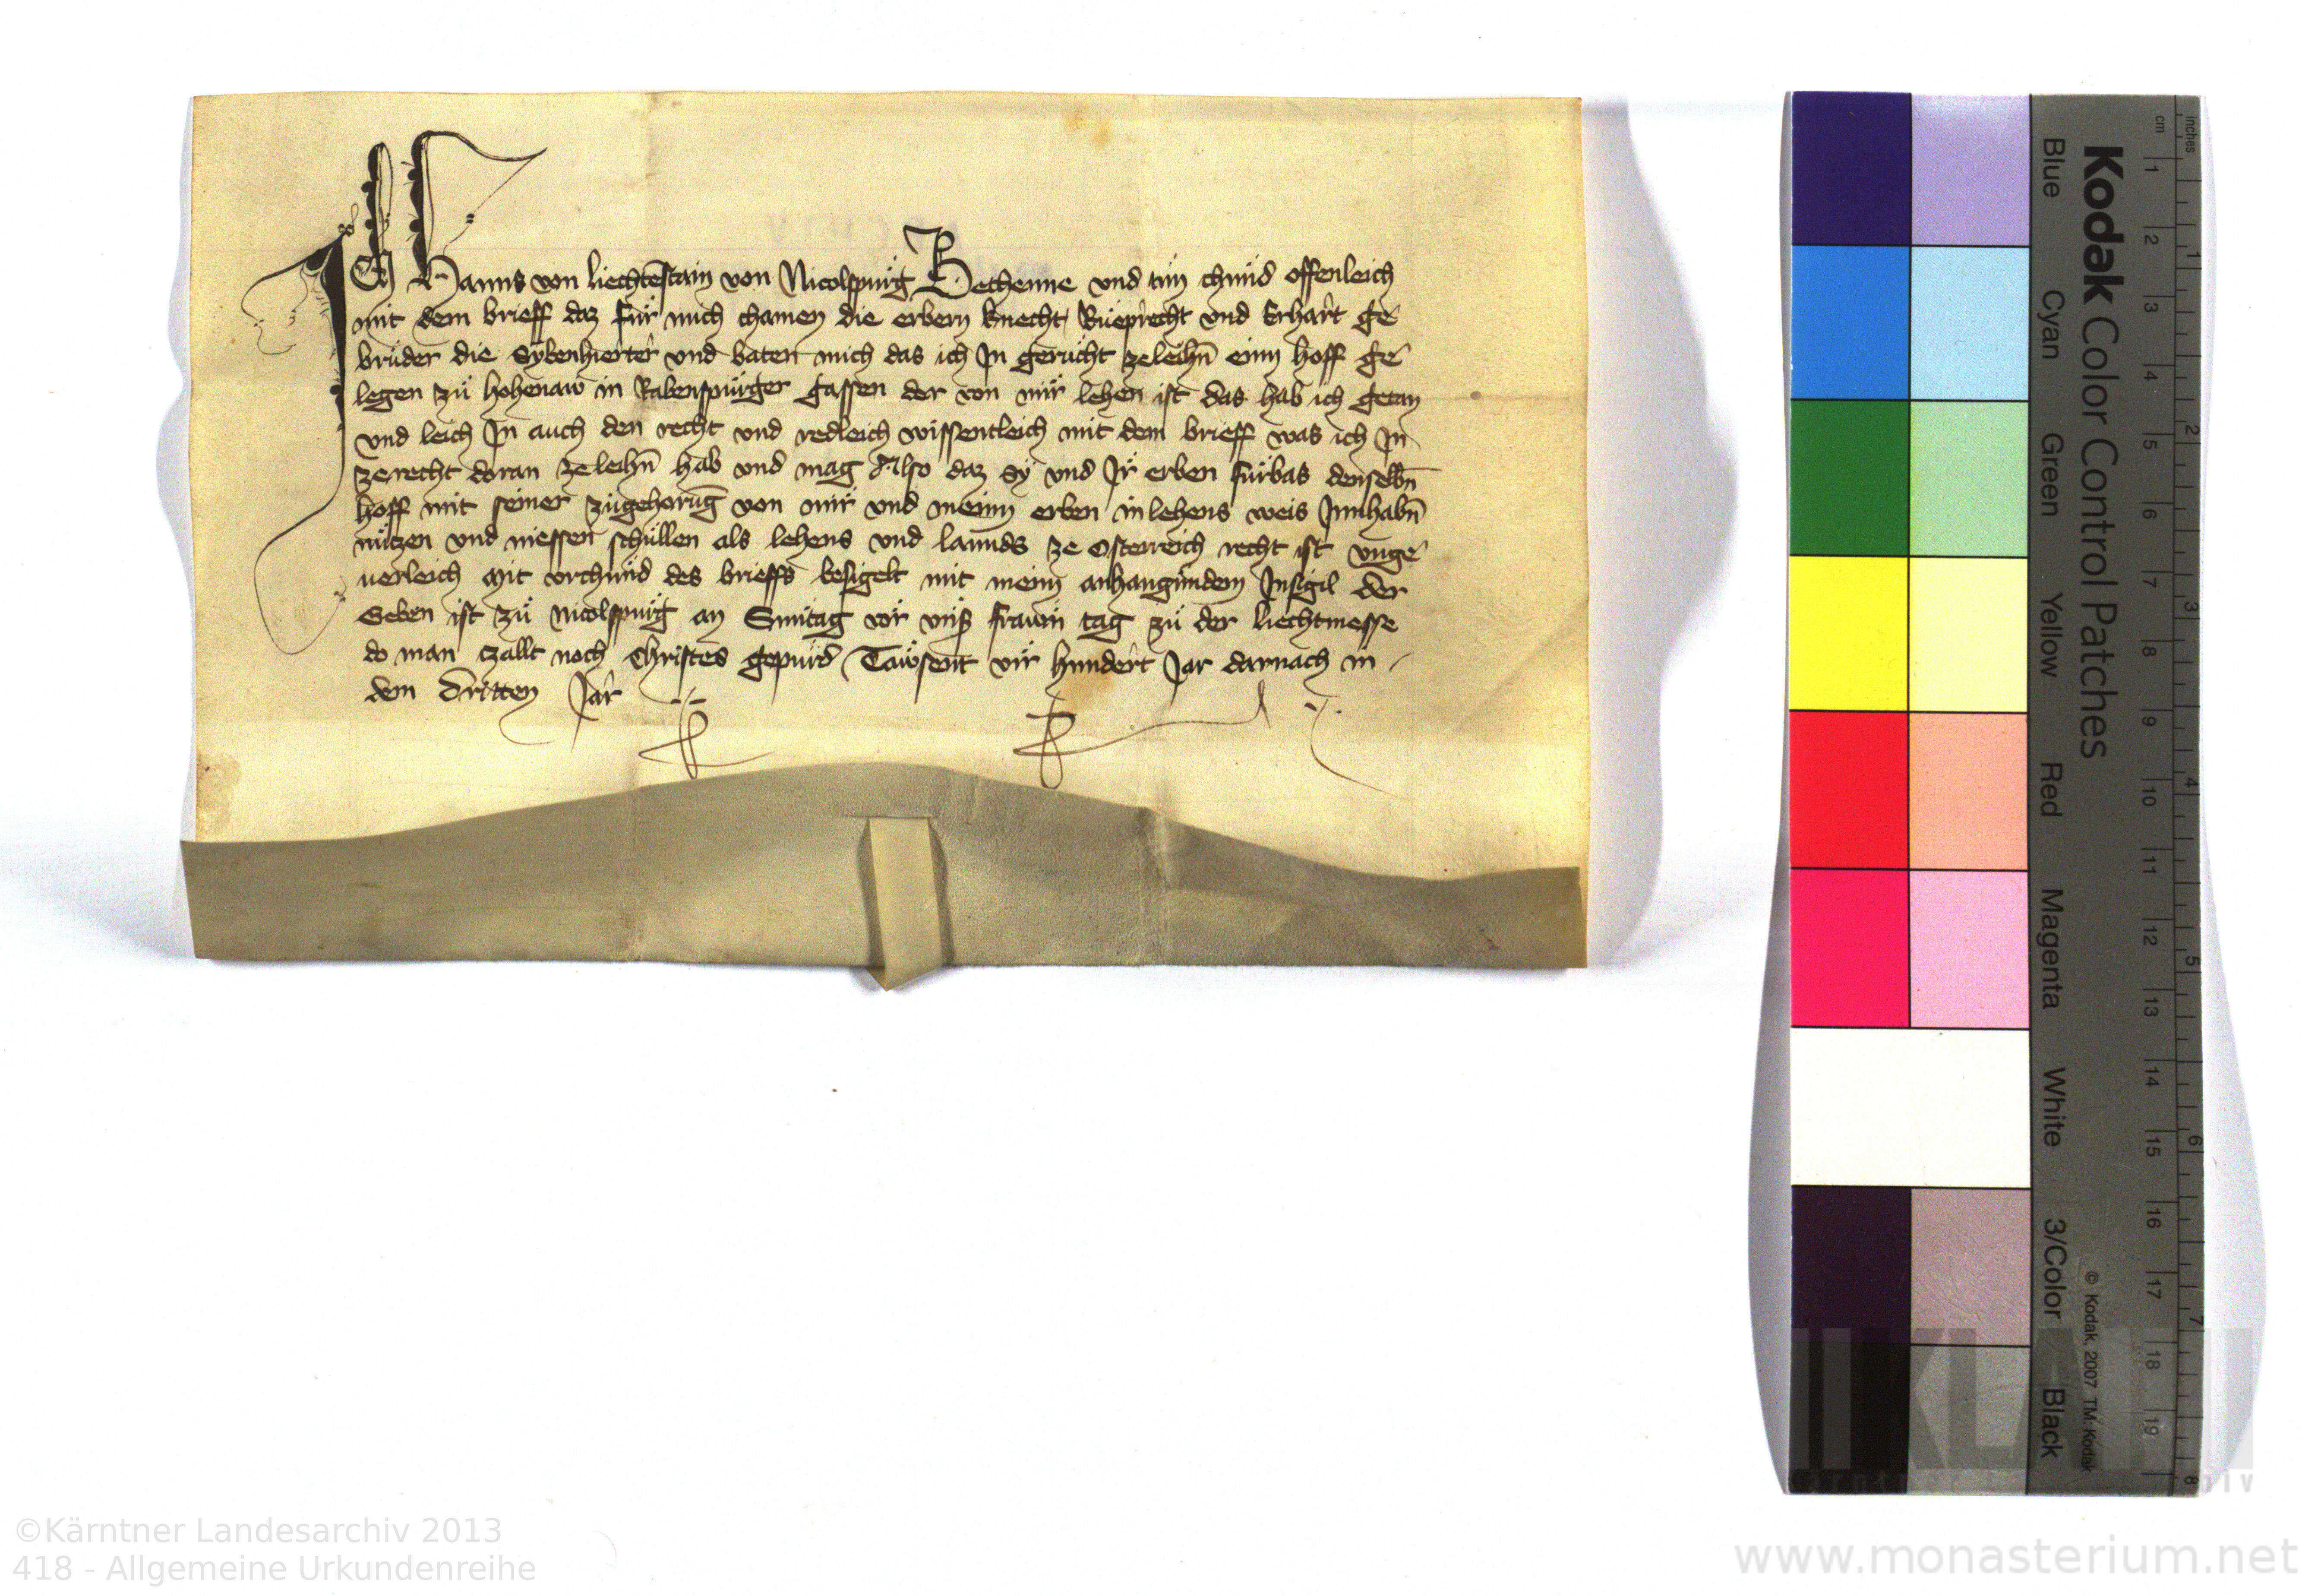 Ich Hanns von Liechtēstain von Nicolspurg Bechenne und tün chünd offenleich
mit dem brieff daz für mich chamen die erbern knecht Rüeprecht und Erhart ge
brüder die Sybenhierter und baten mich das ich In gerücht zeleihn̄ einn hoff ge
legen zü hohenaw in Rabenspürger gassen der von mir lehen ist das hab ich getan
und leich In auch den recht und redleich wissentleich mit dem brieff was ich In
zerecht doran zeleihn̄ hab und mag Also daz sy und Ir erben fürbas denselbn̄
hoff mit seiner zügehorūg von mir und meinn erben inlehens weis Innhabn̄
nützen und niessen schüllen als lehens und lannds ze Osterreich recht ist unge
uerleich Mit vrchünd des brieffs besigelt mit meinn anhangündem Insigil Der
Geben ist zü Nicolspurg an Suntag vor unser frawn tag zü der liechtmesse
do man czallt noch Christes gepürd Tawsent vir hundert Jar darnach in
dem dritten Jar
Kodak Color Control Patches
© Kodak, 2007 TM: Kodak
Blue Cyan Green Yellow Red Magenta White 3/Color Black
cm 1 2 3 4 5 6 7 8 9 10 11 12 13 14 15 16 17 18 19
inches 1 2 3 4 5 6 7 8
KLA
©Kärntner Landesarchiv 2013
418 - Allgemeine Urkundenreihe
www.monasterium.net